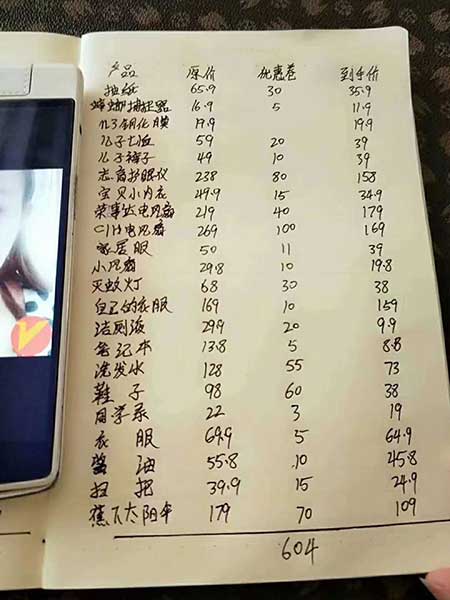 产品 原价 优惠卷 到手价
抽纸 65.9 30 35.9
蟑螂捕捉器 16.9 5 11.9
钢化膜 19.9 19.9
儿子七恤 59 20 39
儿子裤子 49 10 39
护眼仪 238 80 158
宝贝小内衣 49.9 15 34.9
荣事达电风扇 219 40 179
电风扇 269 100 169
家居服 50 11 39
小风扇 29.8 10 19.8
灭蚊灯 68 30 38
自己的衣服 169 10 159
洁厕液 29.9 20 9.9
笔记本 13.8 5 8.8
洗发水 128 55 73
鞋子 98 60 38
22 3 19
衣服 69.9 5 64.9
油 55.8 10 45.8
扫把 39.9 15 24.9
蕉下太阳伞 179 70 109
604